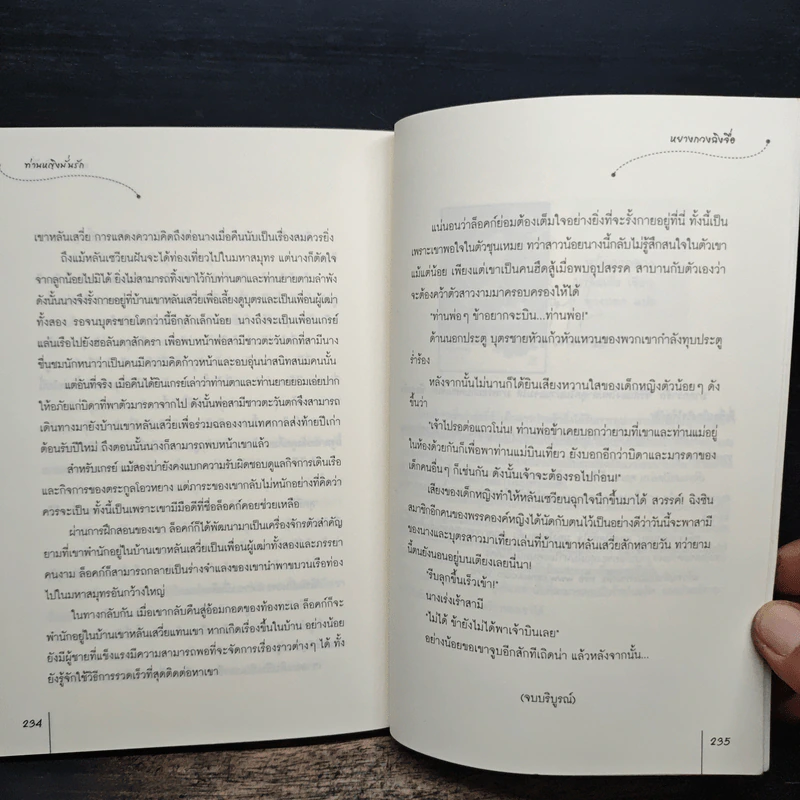 ท่านหญิงพันรัก
เขาหลันเสวี่ย การแสดงความคิดถึงต่อนางเมื่อคืนนับเป็นเรื่องสมควรยิ่ง
ถึงแม้หลันเซวียนฝันจะได้ท่องเที่ยวไปในมหาสมุทร แต่นางก็ตัดใจ
จากลูกน้อยไปมิได้ ยิ่งไม่สามารถทิ้งเขาไว้กับท่านตาและท่านยายตามลำพัง
ดังนั้นนางจึงรั้งกายอยู่ที่บ้านเขาหลันเสวี่ยเพื่อเลี้ยงดูบุตรและเป็นเพื่อนผู้เฒ่า
ทั้งสอง รอจนบุตรชายโตกว่านี้อีกสักเล็กน้อย นางถึงจะเป็นเพื่อนเกรย์
แล่นเรือไปยังฮอลันดาสักครา เพื่อพบหน้าพ่อสามีชาวตะวันตกที่สามีนาง
ชื่นชมนักหนาว่าเป็นคนมีความคิดก้าวหน้าและอบอุ่นน่าสนิทสนมคนนั้น
แต่อันที่จริง เมื่อคืนได้ยินเกรย์เล่าว่าท่านตาและท่านยายยอมเอ่ยปาก
ให้อภัยแก่บิดาที่พาตัวมารดาจากไป ดังนั้นพ่อสามีชาวตะวันตกจึงสามารถ
เดินทางมายังบ้านเขาหลันเสวี่ยเพื่อร่วมฉลองงานเทศกาลส่งท้ายปีเก่า
ต้อนรับปีใหม่ ถึงตอนนั้นนางก็สามารถพบหน้าเขาแล้ว
สำหรับเกรย์ แม้สองบ่ายังคงแบกความรับผิดชอบดูแลกิจการเดินเรือ
และกิจการของตระกูลโอวหยาง แต่ภาระของเขากลับไม่หนักอย่างที่คิดว่า
ควรจะเป็น ทั้งนี้เป็นเพราะเขามีมืออดีที่ชื่อล็อคก์คอยช่วยเหลือ
ผ่านการฝึกสอนของเขา ล็อคก์ก็ได้พัฒนามาเป็นเครื่องจักรตัวสำคัญ
ยามที่เขาพำนักอยู่ในบ้านเขาหลันเสวี่ยเป็นเพื่อนผู้เฒ่าทั้งสองและภรรยา
คนงาม ล็อคก์ก็สามารถกลายเป็นร่างจำแลงของเขานำพาขบวนเรือท่อง
ไปในมหาสมุทรอันกว้างใหญ่
ในทางกลับกัน เมื่อเขากลับคืนสู่อ้อมกอดของท้องทะเล ล็อคก์ก็จะ
พำนักอยู่ในบ้านเขาหลันเสวี่ยแทนเขา หากเกิดเรื่องขึ้นในบ้าน อย่างน้อย
ยังมีผู้ชายที่แข็งแรงมีความสามารถพอที่จะจัดการเรื่องราวต่างๆ ได้ ทั้ง
ยังรู้จักใช้วิธีการรวดเร็วที่สุดติดต่อหาเขา
234
หยางกวงฉิงจื่อ
แน่นอนว่าล็อคก์ย่อมต้องเต็มใจอย่างยิ่งที่จะรั้งกายอยู่ที่นี่ ทั้งนี้เป็น
เพราะเขาพอใจในตัวชุนเหมย ทว่าสาวน้อยนางนี้กลับไม่รู้สึกสนใจในตัวเขา
แม้แต่น้อย เพียงแต่เขาเป็นคนฮึดสู้เมื่อพบอุปสรรค สาบานกับตัวเองว่า
จะต้องคว้าตัวสาวงามมาครอบครองให้ได้
"ท่านพ่อๆ ข้าอยากจะบิน...ท่านพ่อ!"
ด้านนอกประตู บุตรชายหัวแก้วหัวแหวนของพวกเขากำลังทุบประตู
ร่ำร้อง
หลังจากนั้นไม่นานก็ได้ยินเสียงหวานใสของเด็กหญิงตัวน้อยๆ ดัง
ขึ้นว่า
"เจ้าไปรอต่อแถวโน่น! ท่านพ่อข้าเคยบอกว่ายามที่เขาและท่านแม่อยู่
ในห้องด้วยกันก็เพื่อพาท่านแม่บินเที่ยว ยังบอกอีกว่าบิดาและมารดาของ
เด็กคนอื่นๆ ก็เช่นกัน ดังนั้นเจ้าจะต้องรอไปก่อน!"
เสียงของเด็กหญิงทำให้หลันเซวียนฉุกใจนึกขึ้นมาได้ สวรรค์! ฉิงซิน
สมาชิกอีกคนของพรรคองค์หญิงได้นัดกับตนไว้เป็นอย่างดีว่าวันนี้จะพาสามี
ของนางและบุตรสาวมาเที่ยวเล่นที่บ้านเขาหลันเสวี่ยสักหลายวัน ทว่ายาม
นี้ตนยังนอนอยู่บนเตียงเลยนี่นา!
"รีบลุกขึ้นเร็วเข้า!"
นางเร่งเร้าสามี
"ไม่ได้ ข้ายังไม่ได้พาเจ้าบินเลย"
อย่างน้อยขอเขาจูบอีกสักทีเถิดน่า แล้วหลังจากนั้น...
(จบบริบูรณ์)
235